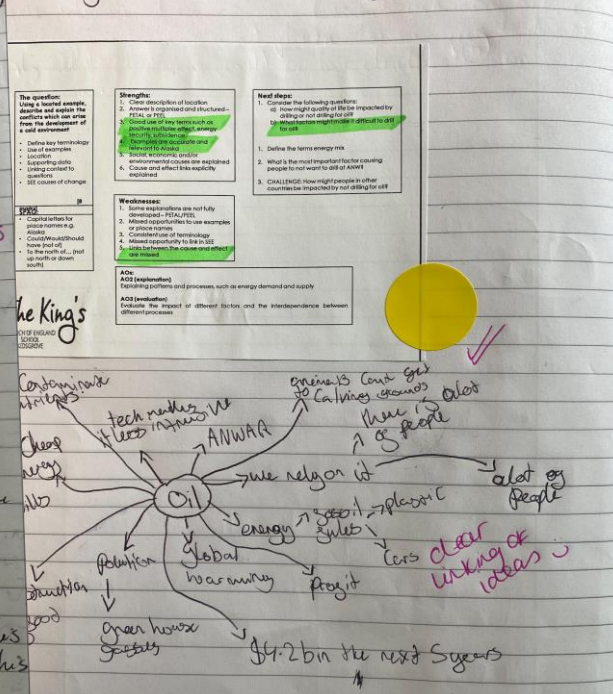 The question:
Using a located example,
describe and explain the
conflicts which can arise
from the development of
a cold environment
• Define key terminology
• Use of examples
• Location
• Supporting data
• Linking context to
questions
• SEE causes of change
• Capital letters for
place names e.g.
Alaska
• Could/Would/Should
have (not of)
• To the north of... (not
up north or down
south)
Strengths:
1. Clear description of location
2. Answer is organised and structured –
PETAL or PEEL
3. Good use of key terms such as
positive multiplier effect, energy
security, subsidence
4. Examples are accurate and
relevant to Alaska
5. Social, economic and/or
environmental causes are explained
6. Cause and effect links explicitly
explained
Weaknesses:
1. Some explanations are not fully
developed – PETAL/PEEL
2. Missed opportunities to use examples
or place names
3. Consistent use of terminology
4. Missed opportunity to link in SEE
5. Links between the cause and effect
are missed
Next steps:
1. Consider the following questions:
a) How might quality of life be impacted by
drilling or not drilling for oil?
b) What factors might make it difficult to drill
for oil?
1. Define the terms energy mix
2. What is the most important factor causing
people to not want to drill at ANWR
3. CHALLENGE: How might people in other
countries be impacted by not drilling for oil?
AOs:
AO2 (explanation)
Explaining patterns and processes, such as energy demand and supply
AO3 (evaluation)
Evaluate the impact of different factors and the interdependence between
different processes
he King's
CH OF ENGLAND
SCHOOL
tech makes
it less intrusive
ANWAR
animals cant get
to Calving grounds
there is alot
of people
Cheap
Oil
we rely on it
alot of
People
energy
fossil
fules
plastic
Cars
Polution
green house
gasses
global
warming
Profit
$4.2bin the next 5years
clear
linking of
ideas